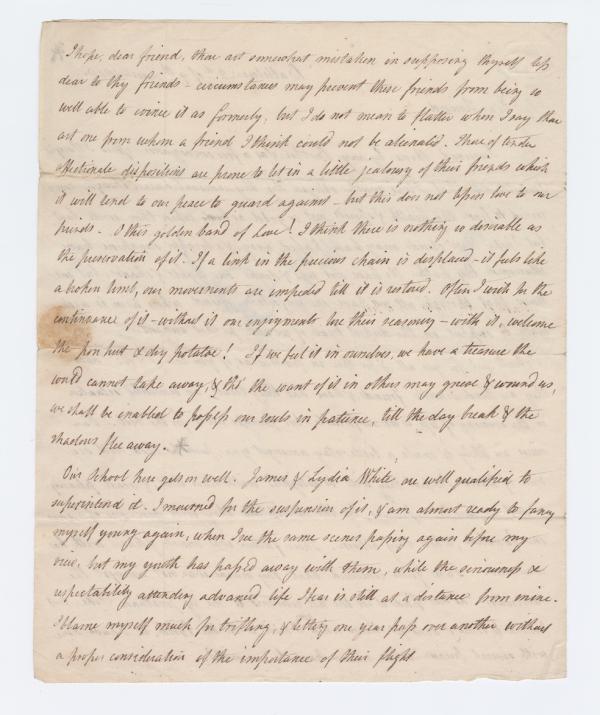 I hope, dear friend, thou art somewhat mistaken in supposing thyself less
dear to thy friends – circumstances may prevent these friends from being so
well able to evince it as formerly, but I do not mean to flatter when I say thou
art one from whom a friend I think could not be alienated. Those of tender
affectionate dispositions are prone to let in a little jealousy of their friends which
it will tend to our peace to guard against – but this does not lessen love to our
friends. O this golden band of Love! I think there is nothing so desirable as
the preservation of it. If a link in the precious chain is displaced – it feels like
a broken limb, our movements are impeded till it is restored. Often I wish for the
continuance of it – without it our enjoyments lose their seasoning – with it, welcome
the poor hut & dry potatoe! If we feel it in ourselves, we have a treasure the
world cannot take away, & tho' the want of it in others may grieve & wound us,
we shall be enabled to possess our souls in patience, till the day break & the
shadows flee away. *
Our School here gets on well. James & Lydia White are well qualified to
superintend it. I mourned for the suspension of it, & am almost ready to fancy
myself young again, when I see the same scenes passing again before my
view, but my youth has passed away with them, while the seriousness &
respectability attending advanced life I fear is still at a distance from mine.
I blame myself much for trifling, & letting one year pass over another without
a proper consideration of the importance of their flight